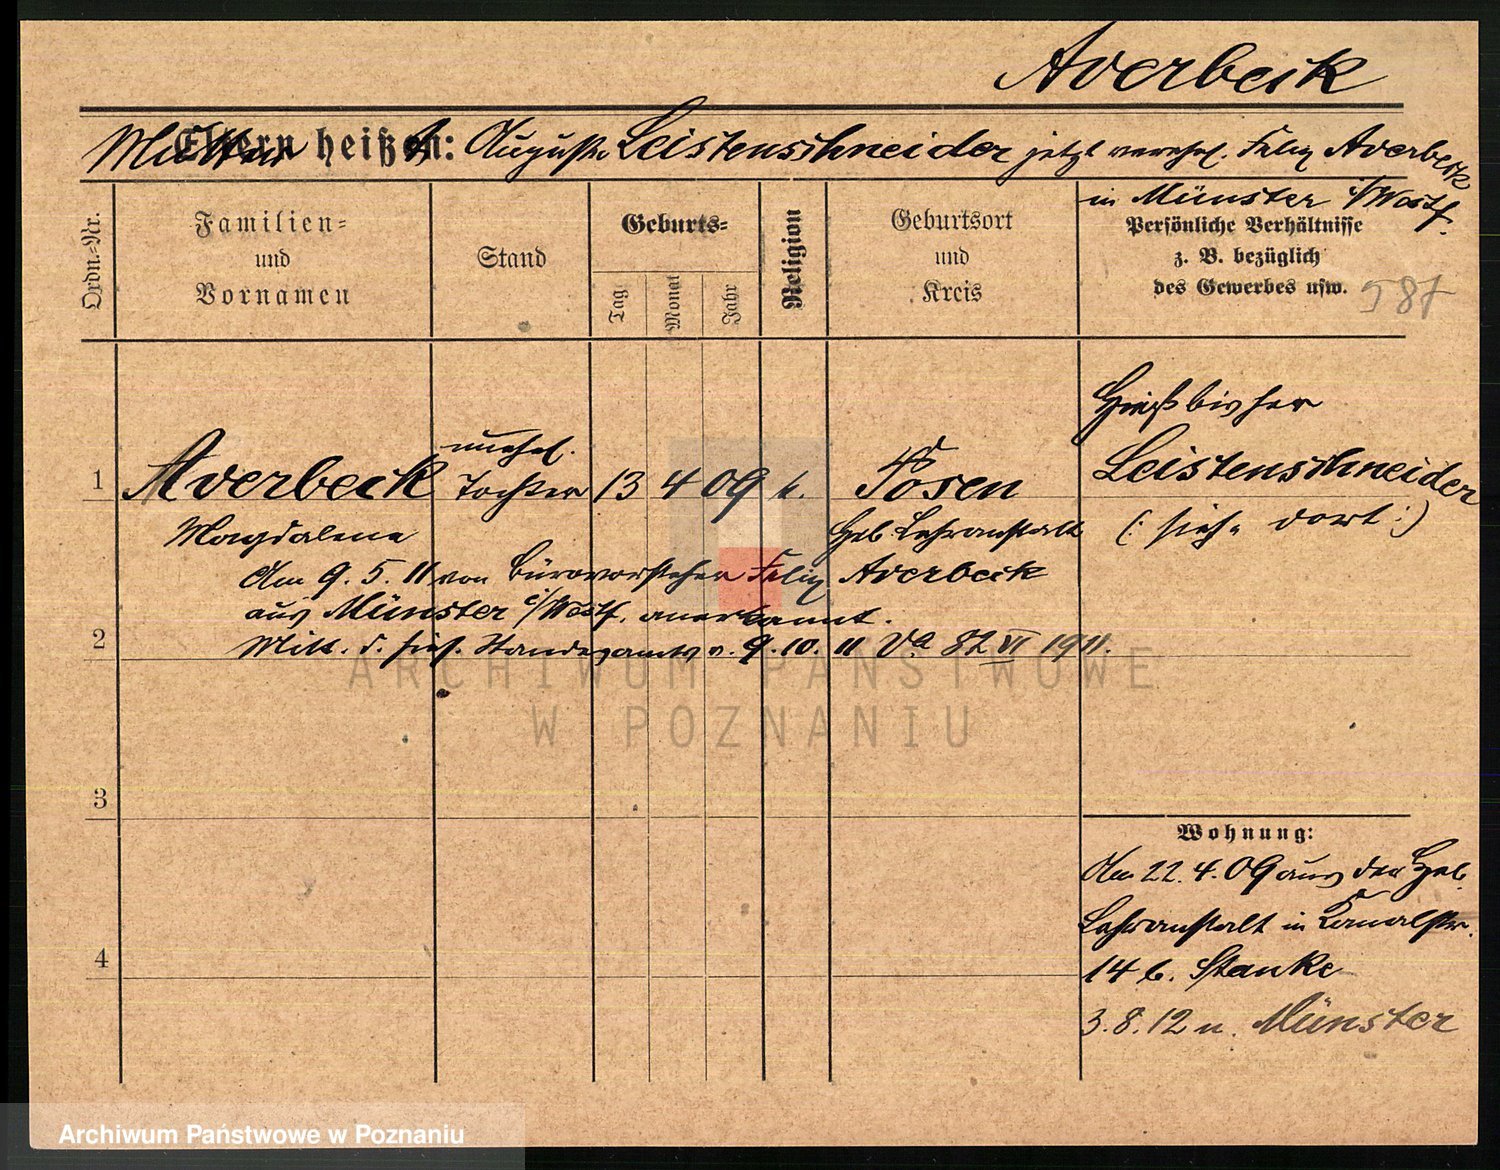 Averbeck
Mutter heißt: Auguste Leistenschneider jetzt verehel. Felix Averbeck
in Münster i/Westf.
Ordn.-Nr.
Familien-
und
Vornamen
Stand
Geburts-
Tag
Monat
Jahr
Religion
Geburtsort
und
Kreis
Persönliche Verhältnisse
z. B. bezüglich
des Gewerbes usw.
587
Hieß bisher
Leistenschneider
(: siehe dort :)
unehel.
1 Averbeck Tochter 13 4 09 k. Posen
Magdalena Heb. Lehranstalt
Am 9. 5. 11 von Bürovorsteher Felix Averbeck
aus Münster i/Westf. anerkannt.
2 Mitt. d. hies. Standesamts v. 9. 10. 11 Va 82 VI 1911.
3
4
Wohnung:
Am 22. 4. 09 aus der Heb.
Lehranstalt in Kanalstr.
14 b. Stanke
3. 8. 12 n. Münster
ARCHIWUM PAŃSTWOWE
W POZNANIU
Archiwum Państwowe w Poznaniu